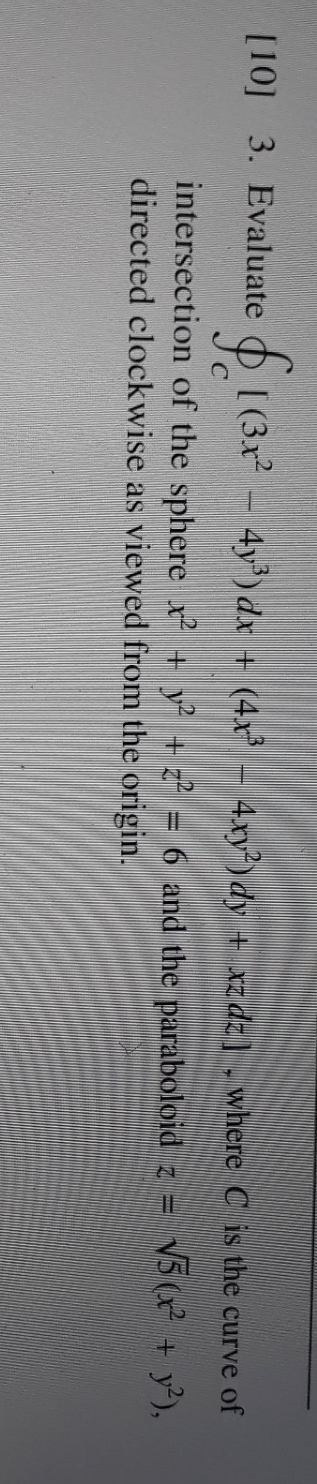 [10] 3. Evaluate ∮_C [(3x² − 4y³)dx + (4x³ − 4xy²)dy + xz dz], where C is the curve of
intersection of the sphere x² + y² + z² = 6 and the paraboloid z = √5(x² + y²),
directed clockwise as viewed from the origin.